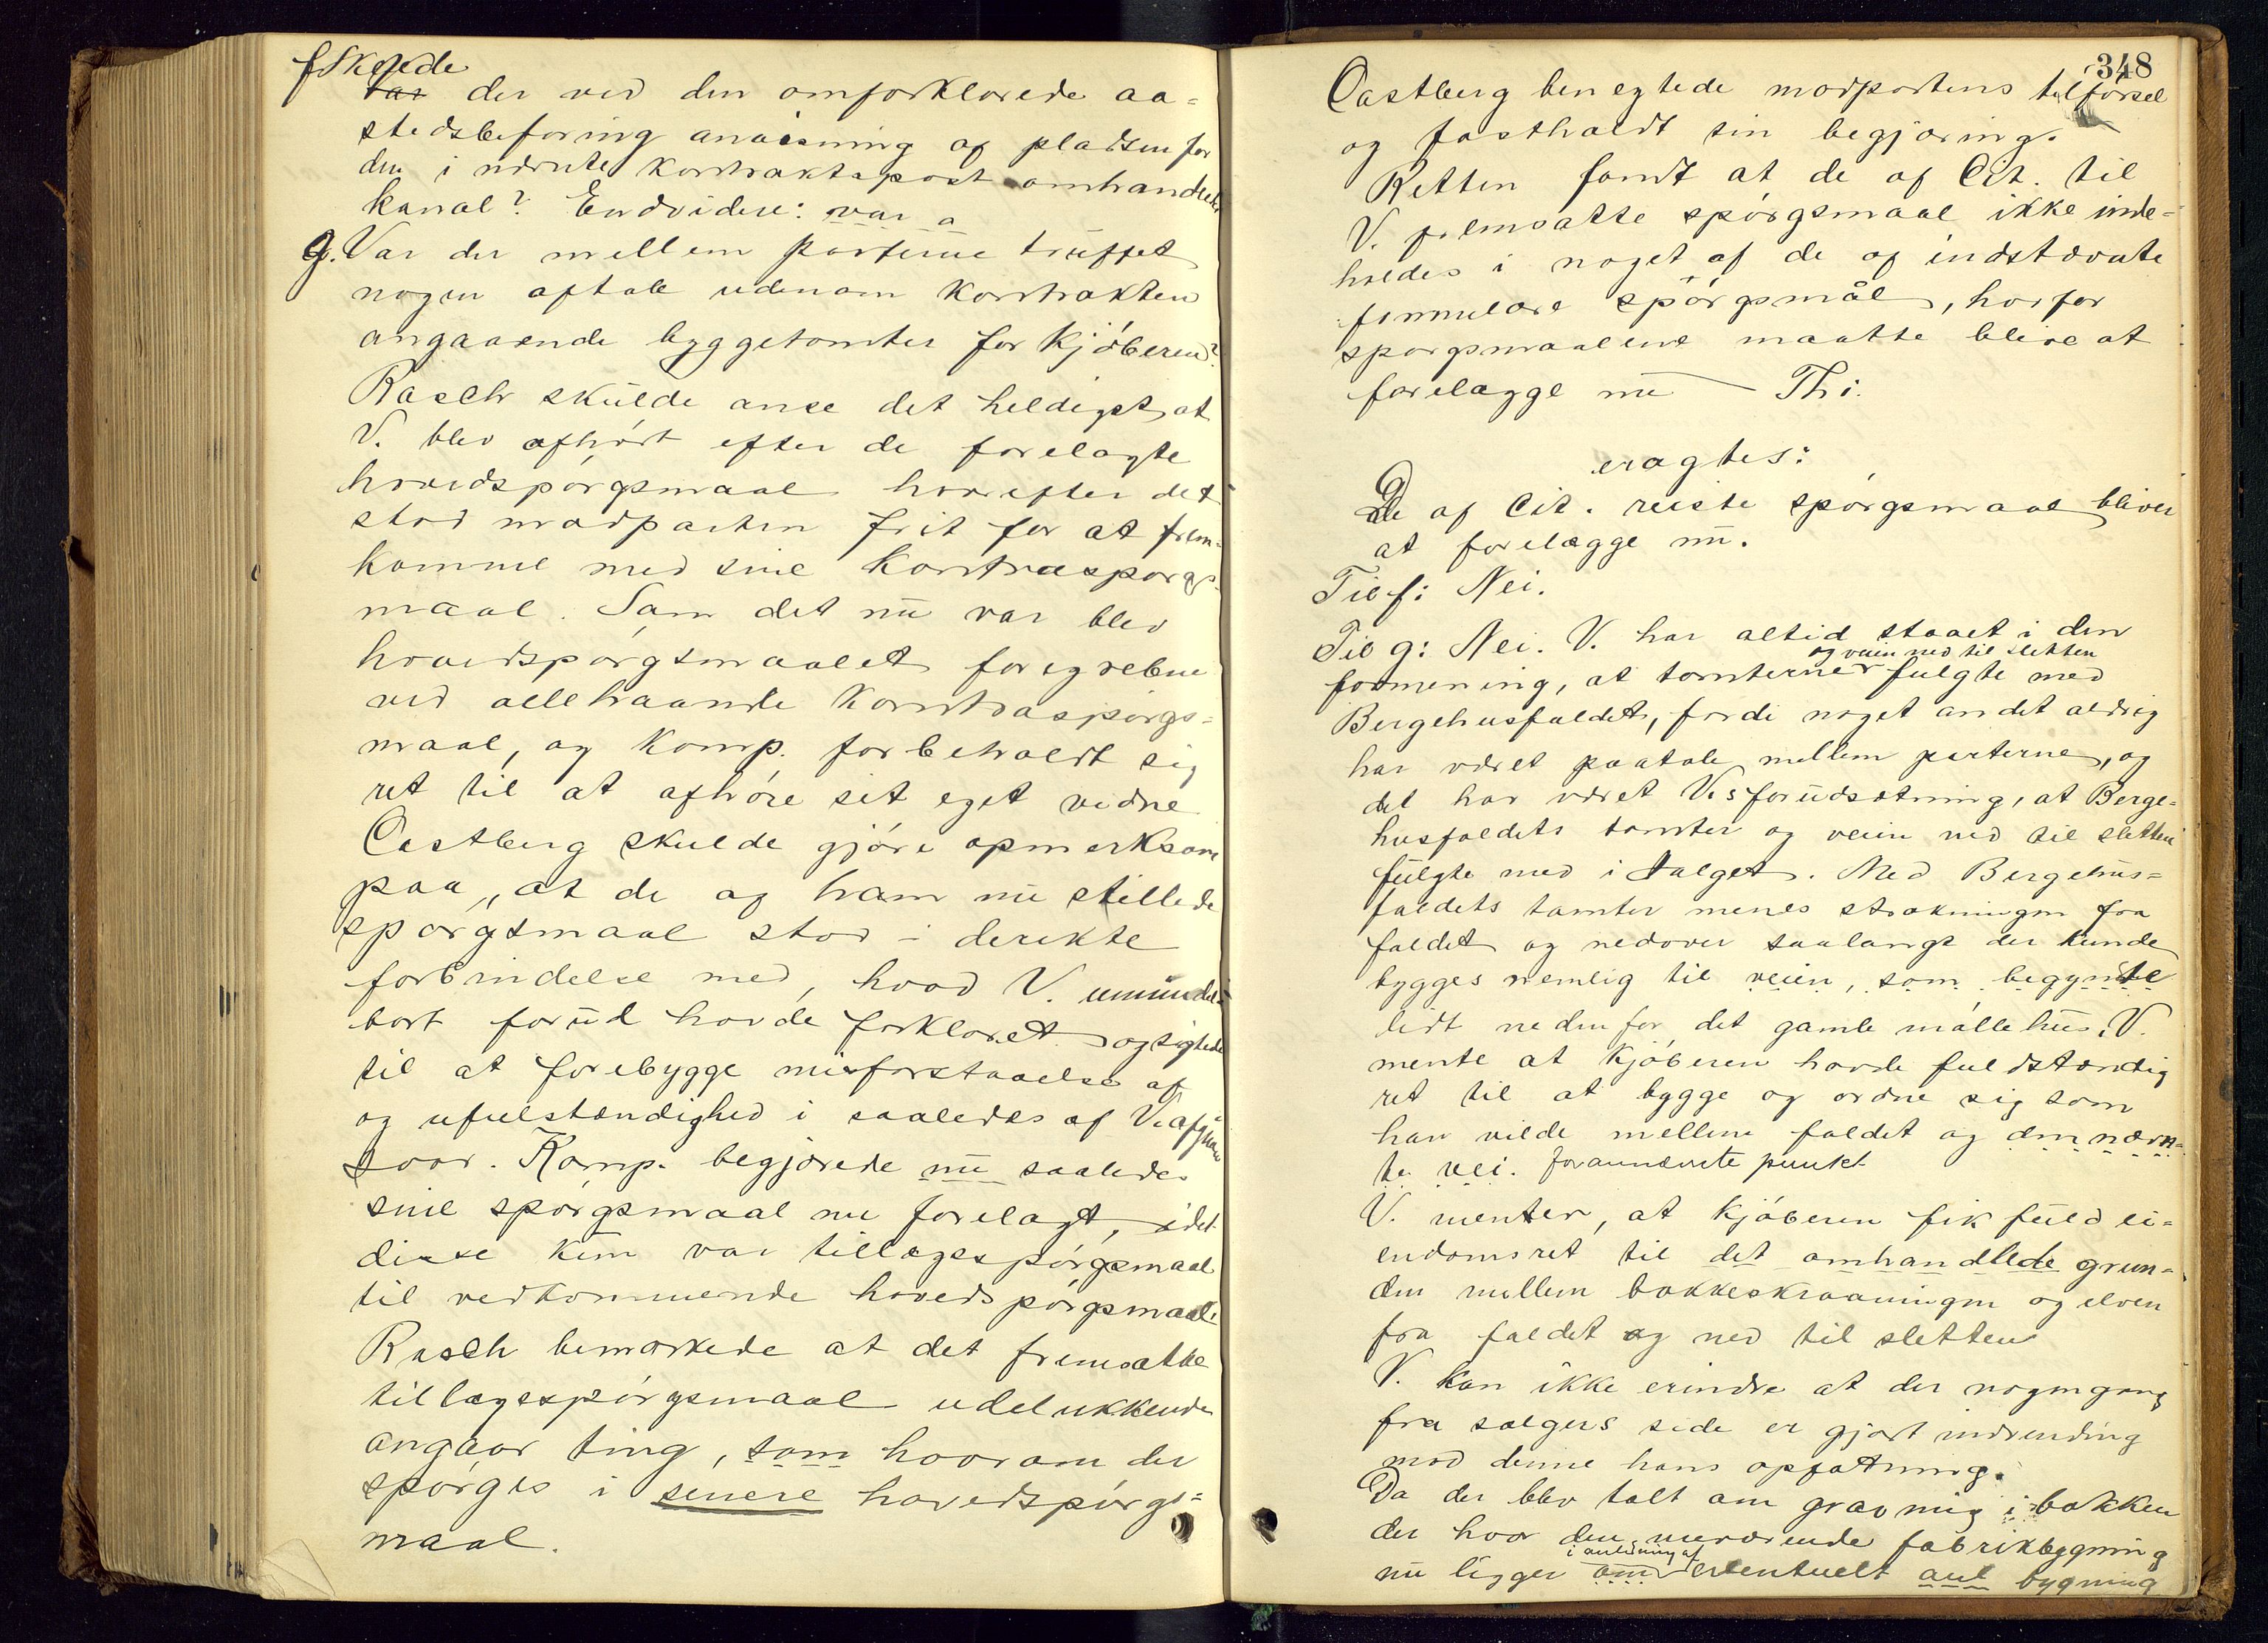 f Skede
var der ved den omforklarede aa=
stedsbefaring anvisning af pladsen for
den i nævnte kontraktspost omhandlede
kanal? Endvidere: var a
g. Var der mellem parterne truffet
nogen aftale udenom kontrakten
angaaende byggetomter for kjøberen?
Rasch skulde anse det heldigst, at
V. blev afhørt efter de forelagte
hovedspørgsmaal hvorefter det
stod modparten frit for at frem=
komme med sine kontraspørgs=
maal. Som det nu var blev
hovedspørgsmaalet foregrebne
ved allehaande kontraspørgs=
maal, og komp. forbeholdt sig
ret til at afhøre sit eget vidne
Castberg skulde gjøre opmerksom
paa, at de af ham nu stillede
spørgsmaal stod i derekte
forbindelse med, hvad V. umiddel=
bart forud havde forklaret og sigtede
til at forebygge misforstaaelse af
og ufulstændighed i saaledes af V. afgivne
svar. Komp. begjærede nu saaledes
sine spørgsmaal nu forelagt, idet
disse kun var tillægsspørgsmaal
til vedkommende hovedspørgsmaal.
Rasch bemærkede at det fremsatte
tillægsspørgsmaal udelukkende
angaar ting, som hvorom der
spørges i senere hovedspørgs=
maal.
348
Castberg benegtede modpartens tilførsel
og fastholdt sin begjæring.
Retten fandt at de af Cit. til
V. fremsatte spørgsmaal ikke inde=
holdes i noget af de af indstævnte
formulære spørgsmål, hvorfor
spørgsmaalene maatte blive at
forelægge nu — Thi.
eragtes:
De af Cit. reiste spørgsmaal bliver
at forelægge nu.
Til f: Nei.
Til g: Nei. V. har altid staaet i den
og veien ned til sletten
formening, at tomterne fulgte med
Bergehusfaldet, fordi noget andet aldrig
har været paatale mellem parterne, og
det har været V.s forudsætning, at Berge=
husfaldets tomter og veien ned til sletten
fulgte med i salget. Med Bergehus=
faldets tomter menes strækningen fra
faldet og nedover saalangt der kunde
bygges nemlig til veien, som begynte
lidt nedenfor det gamle møllehus. V.
mente at kjøberen havde fuldstændig
ret til at bygge og ordne sig som
han vilde mellem faldet og den nævn=
te vei. forannævnte punkt
V. menter, at kjøberen fik fuld ei=
endomsret til det omhandlede grun=
den mellem bakkeskraaningen og elven
fra faldet og ned til sletten
V. kan ikke erindre at der nogengang
fra sælgers side er gjort indvending
mod denne hans opfatning.
Da der blev talt om gravning i bakken
der hvor den nuværende fabrikbygning
i anledning af
nu ligger om eventuelt anl bygning